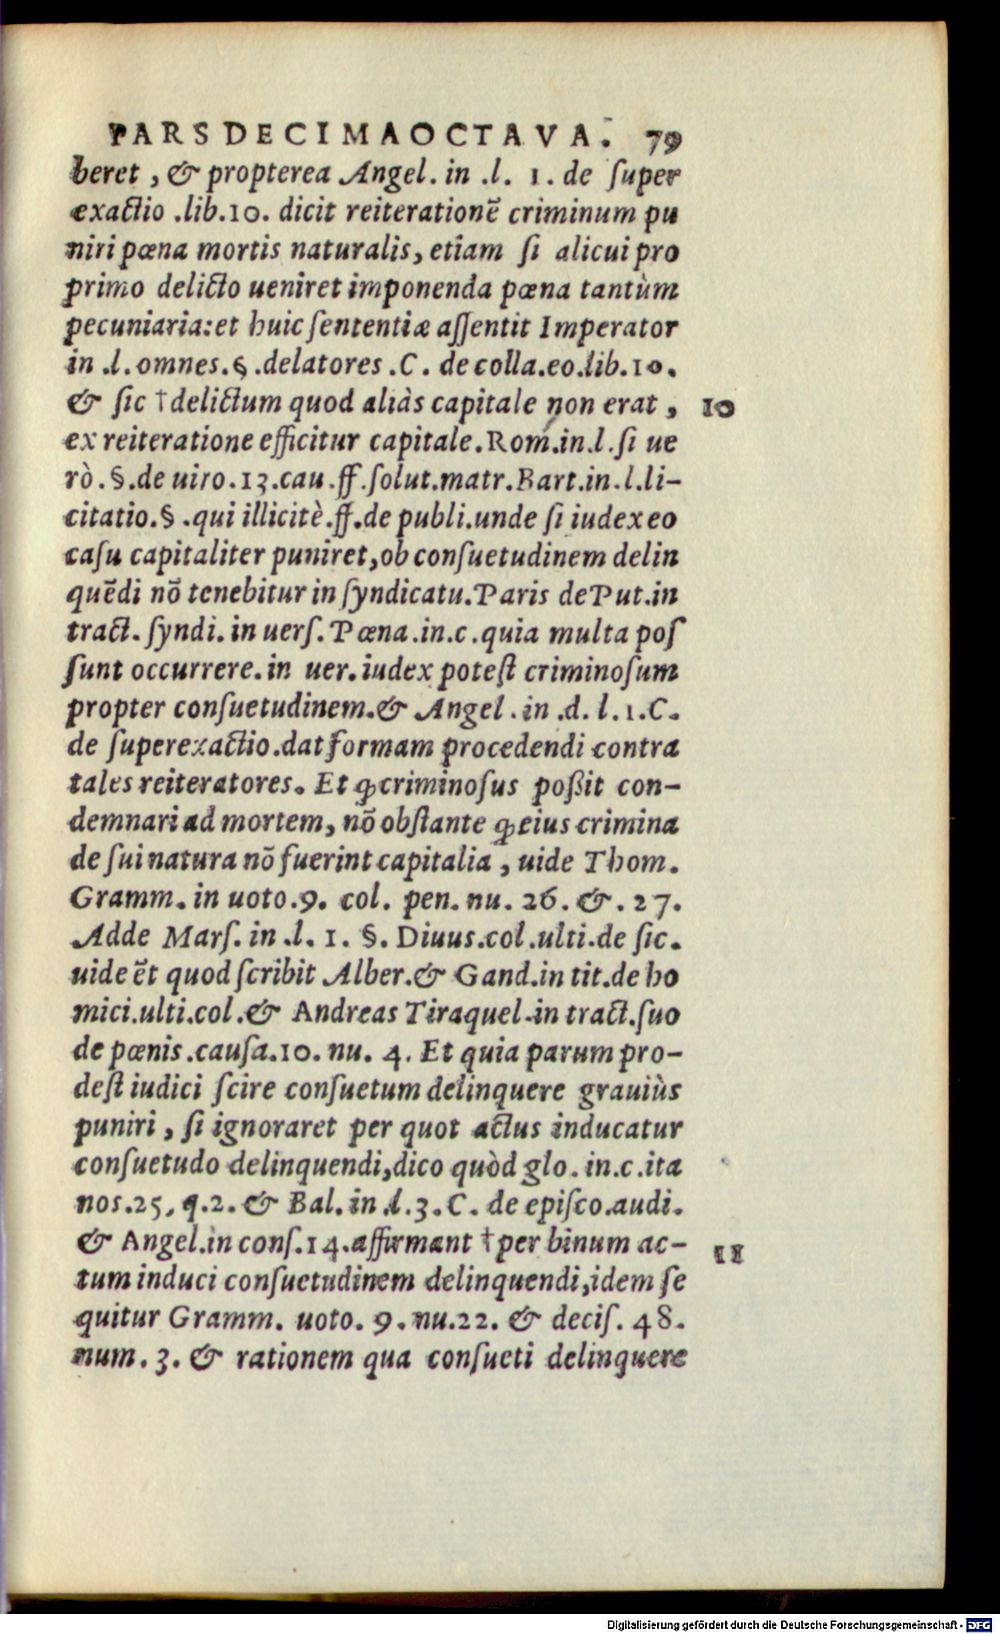 PARS DECIMAOCTAVA. 79
beret, & propterea Angel. in .l. 1. de ſuper
exactio .lib.10. dicit reiterationē criminum pu
niri pœna mortis naturalis, etiam ſi alicui pro
primo delicto ueniret imponenda pœna tantùm
pecuniaria: et huic ſententiæ aſſentit Imperator
in .l. omnes.§.delatores .C. de colla.eo.lib.10.
& ſic †delictum quod aliàs capitale non erat, 10
ex reiteratione efficitur capitale.Rom.in.l.ſi ue
rò.§.de uiro.13.cau.ff.ſolut.matr.Bart.in.l.li-
citatio.§.qui illicitè.ff.de publi.unde ſi iudex eo
caſu capitaliter puniret,ob conſuetudinem delin
quēdi nō tenebitur in ſyndicatu.Paris de Put.in
tract. ſyndi. in uerſ. Pœna .in.c.quia multa poſ
ſunt occurrere.in uer.iudex poteſt criminoſum
propter conſuetudinem.& Angel.in .d. l.1.C.
de ſuperexactio.dat formam procedendi contra
tales reiteratores. Et ꝙ criminoſus poßit con-
demnari ad mortem, nō obſtante ꝙ eius crimina
de ſui natura nō fuerint capitalia, uide Thom.
Gramm. in uoto.9. col. pen. nu. 26. &. 27.
Adde Marſ. in .l. 1. §. Diuus.col.ulti.de ſic.
uide ēt quod ſcribit Alber.& Gand.in tit.de ho
mici.ulti.col.& Andreas Tiraquel.in tract.ſuo
de pœnis.cauſa.10. nu. 4. Et quia parum pro-
deſt iudici ſcire conſuetum delinquere grauiùs
puniri, ſi ignoraret per quot actus inducatur
conſuetudo delinquendi,dico quòd glo. in.c.ita
nos.25. q.2. & Bal. in .l.3.C. de epiſco.audi.
& Angel.in conſ.14.affirmant †per binum ac- 11
tum induci conſuetudinem delinquendi,idem ſe
quitur Gramm. uoto. 9. nu.22. & deciſ. 48.
num. 3. & rationem qua conſueti delinquere
Digitalisierung gefördert durch die Deutsche Forschungsgemeinschaft - DFG